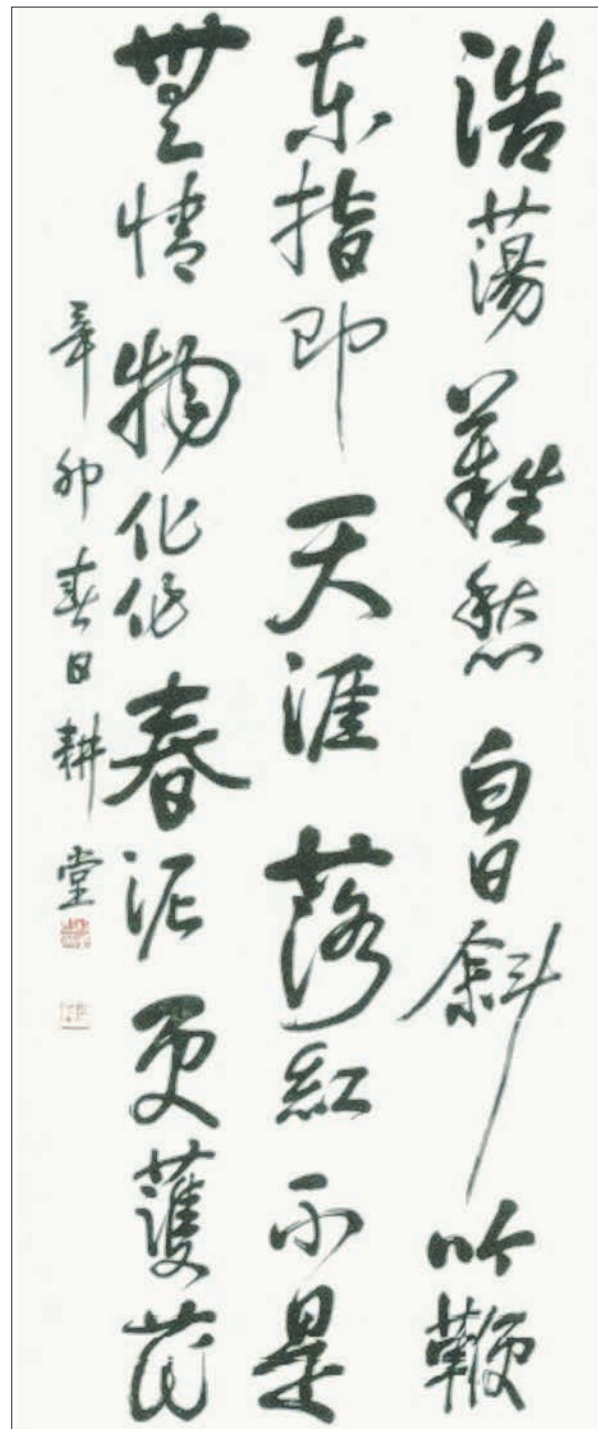 浩蕩離愁白日斜吟鞭
東指即天涯落紅不是
無情物化作春泥更護花
辛卯春日耕堂